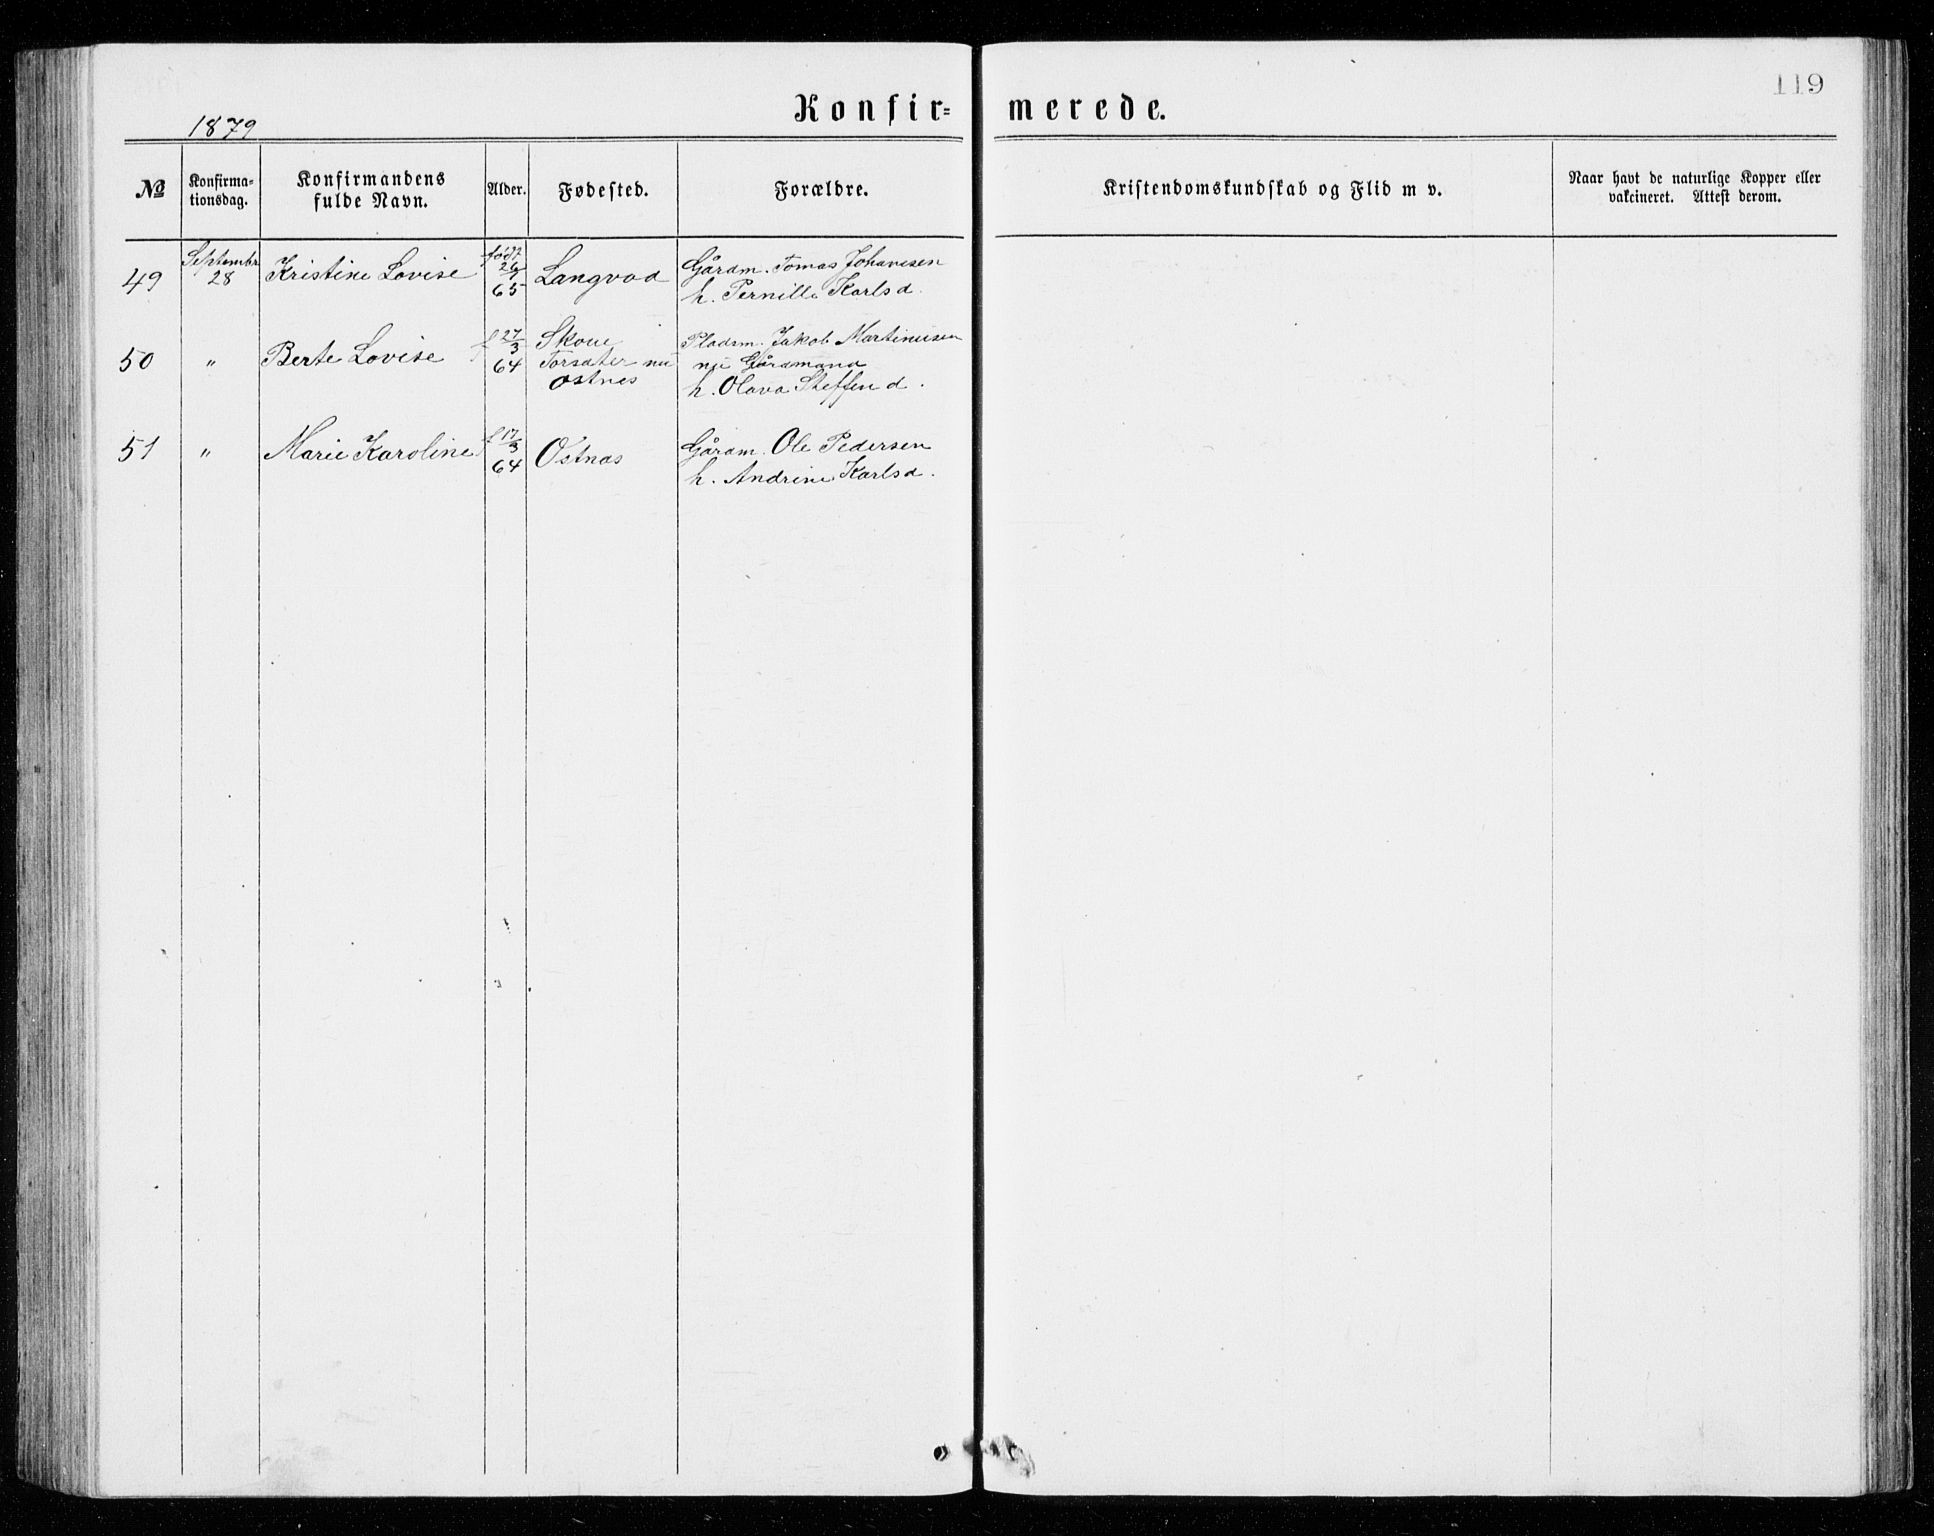 119
Konfir- merede.
1879
No
Konfirma-
tionsdag.
Konfirmandens
fulde Navn.
Alder.
Fødested.
Forældre.
Kristendomskundskab og Flid m v.
Naar havt de naturlige Kopper eller
vakcineret. Attest derom.
49
Septembr
28
Kristine Lovise
født
26/1
65
Langvad
Gårdm. Tomas Johansen
h. Pernille Karlsd.
50
"
Berte Lovise
f 27/3
64
Skoue
Torsater nu
Ostnes
Pladsm. Jakob Martinusen
nu Gårdmand
h. Olava Steffend.
51
"
Marie Karoline
f 17/3
64
Ostnæs
Gårdm. Ole Pedersen
h. Andrine Karlsd.